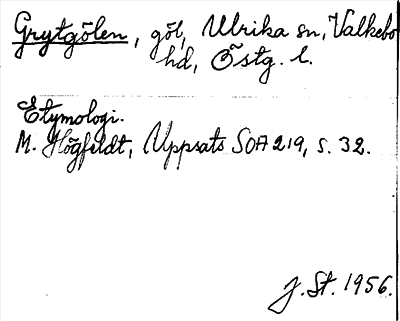 Grytgölen, göl, Ulrika sn, Valkebo
hd, Östg. l.
Etymologi.
M. Högfeldt, Uppsats SOA 219, s. 32.
J. St. 1956.